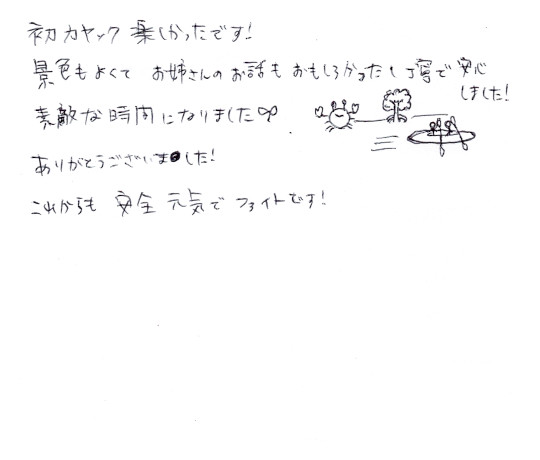 初カヤック楽しかったです!
景色もよくて お姉さんのお話もおもしろかったし丁寧で安心しました!
素敵な時間になりました∞
ありがとうございました!
これからも 安全 元気で ファイトです!